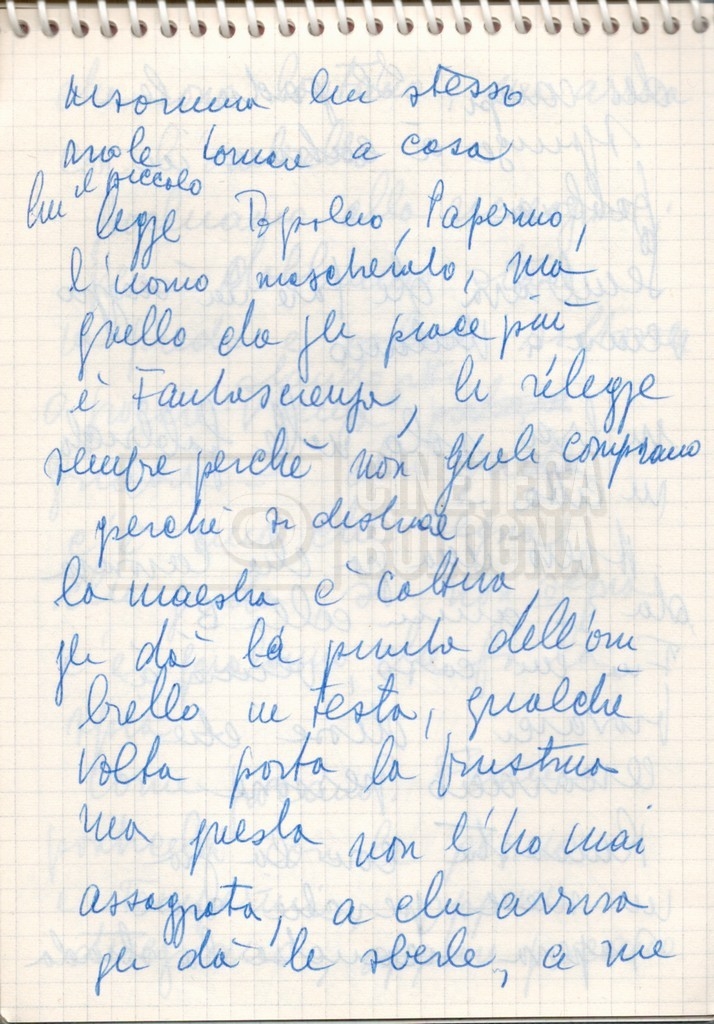 insomma lui stesso
vuole tornare a casa
lui il piccolo
legge Topolino, Paperino,
l'uomo mascherato, ma
quello che gli piace più
è Fantascienza, li rilegge
sempre perchè non glieli comprano
perchè si distrae
la maestra è cattiva,
gli dà la punta dell'om
brello in testa, qualche
volta porta la frustina
ma questa non l'ho mai
assaggiata, a chi arriva
gli dà le sberle, a me
CINETECA
BOLOGNA